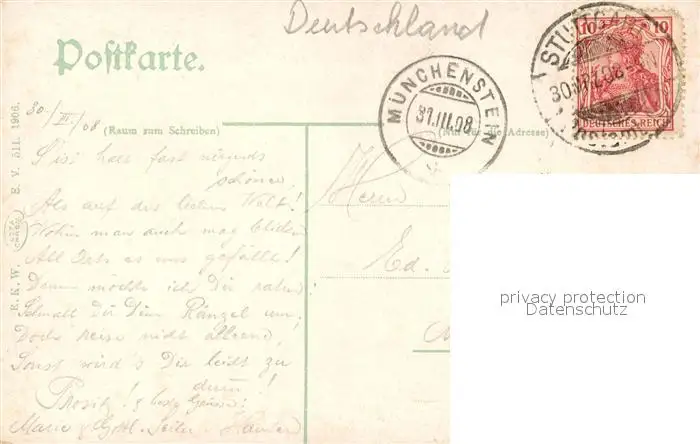 Deutschland
Postkarte.
STUTTGART
30.III.08
10 10
DEUTSCHES REICH
MÜNCHENSTEIN
31.III.08
30./III./08
(Raum zum Schreiben)
(Nur für die Adresse)
S'ist halt fast nirends
schöner,
Als auf der lieben Welt!
Wohin man auch mag blicken
All Orts es uns gefällt!
Drum möchte ich Dir raten:
Schnall dir Dein Ränzel um,
Doch reise nicht alleine,
Sonst wird's Dir leicht zu
dumm!
Prosit! & beste Grüsse!
Marie &
Herrn
Ed.
E.K.W. E. V. 511. 1906.
privacy protection
Datenschutz